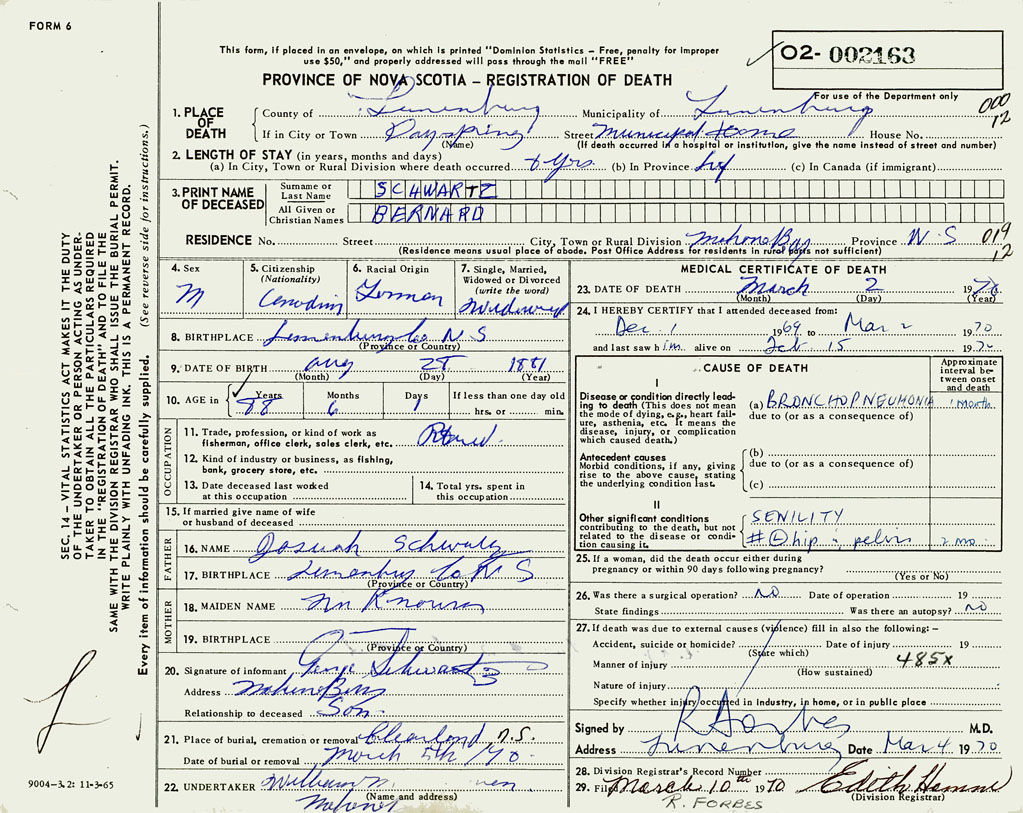 FORM 6
This form, if placed in an envelope, on which is printed "Dominion Statistics – Free, penalty for improper
use $50," and properly addressed will pass through the mail "FREE"
02- 002163
PROVINCE OF NOVA SCOTIA – REGISTRATION OF DEATH
For use of the Department only
000
12
1. PLACE OF DEATH
County of Lunenburg Municipality of Lunenburg
If in City or Town Dayspring Street Municipal Home House No.
(Name) (If death occurred in a hospital or institution, give the name instead of street and number)
2. LENGTH OF STAY (in years, months and days)
(a) In City, Town or Rural Division where death occurred 6 yrs. (b) In Province (c) In Canada (if immigrant)
3. PRINT NAME OF DECEASED
Surname or Last Name SCHWARTZ
All Given or Christian Names BERNARD
RESIDENCE No. Street City, Town or Rural Division Mahone Bay Province N S 019
12
(Residence means usual place of abode. Post Office Address for residents in rural parts not sufficient)
4. Sex M
5. Citizenship (Nationality) Canadian
6. Racial Origin German
7. Single, Married, Widowed or Divorced (write the word) Widowed
8. BIRTHPLACE Lunenburg Co N.S
(Province or Country)
9. DATE OF BIRTH Aug 28 1881
(Month) (Day) (Year)
10. AGE in Years 88 Months 6 Days If less than one day old hrs. or min.
OCCUPATION
11. Trade, profession, or kind of work as fisherman, office clerk, sales clerk, etc. Retired.
12. Kind of industry or business, as fishing, bank, grocery store, etc.
13. Date deceased last worked at this occupation
14. Total yrs. spent in this occupation
15. If married give name of wife or husband of deceased
FATHER
16. NAME Josiah Schwartz
17. BIRTHPLACE Lunenburg Co N S
(Province or Country)
MOTHER
18. MAIDEN NAME
19. BIRTHPLACE
(Province or Country)
20. Signature of informant George Schwartz
Address Mahone Bay
Relationship to deceased Son.
21. Place of burial, cremation or removal Clearland N.S.
Date of burial or removal March 5th /70
22. UNDERTAKER William
(Name and address)
Mahone
MEDICAL CERTIFICATE OF DEATH
23. DATE OF DEATH March 2 1970
(Month) (Day) (Year)
24. I HEREBY CERTIFY that I attended deceased from:
Dec. 1 1969 to Mar 2 1970
and last saw him alive on Feb 15 1970
CAUSE OF DEATH
Approximate interval between onset and death
I
Disease or condition directly leading to death (This does not mean the mode of dying, e.g., heart failure, asthenia, etc. It means the disease, injury, or complication which caused death.)
(a) BRONCHOPNEUMONIA 1 month
due to (or as a consequence of)
Antecedent causes
Morbid conditions, if any, giving rise to the above cause, stating the underlying condition last.
(b)
due to (or as a consequence of)
(c)
II
Other significant conditions contributing to the death, but not related to the disease or condition causing it.
SENILITY
# hip & pelvis 2 mo.
25. If a woman, did the death occur either during pregnancy or within 90 days following pregnancy?
(Yes or No)
26. Was there a surgical operation? NO Date of operation 19
State findings Was there an autopsy? NO
27. If death was due to external causes (violence) fill in also the following: –
Accident, suicide or homicide? Date of injury 19
(State which)
Manner of injury 485X
(How sustained)
Nature of injury
Specify whether injury occurred in industry, in home, or in public place
Signed by R Forbes M.D.
Address Lunenburg Date Mar 4 1970
28. Division Registrar's Record Number
29. Filed March 10th 1970 Edith
(Division Registrar)
R. FORBES
SEC. 14 – VITAL STATISTICS ACT MAKES IT THE DUTY
OF THE UNDERTAKER OR PERSON ACTING AS UNDER-
TAKER TO OBTAIN ALL THE PARTICULARS REQUIRED
IN THE "REGISTRATION OF DEATH" AND TO FILE THE
SAME WITH THE DIVISION REGISTRAR WHO SHALL ISSUE THE BURIAL PERMIT.
WRITE PLAINLY WITH UNFADING INK. THIS IS A PERMANENT RECORD.
Every item of information should be carefully supplied. (See reverse side for instructions.)
9004–3.2: 11-3-65